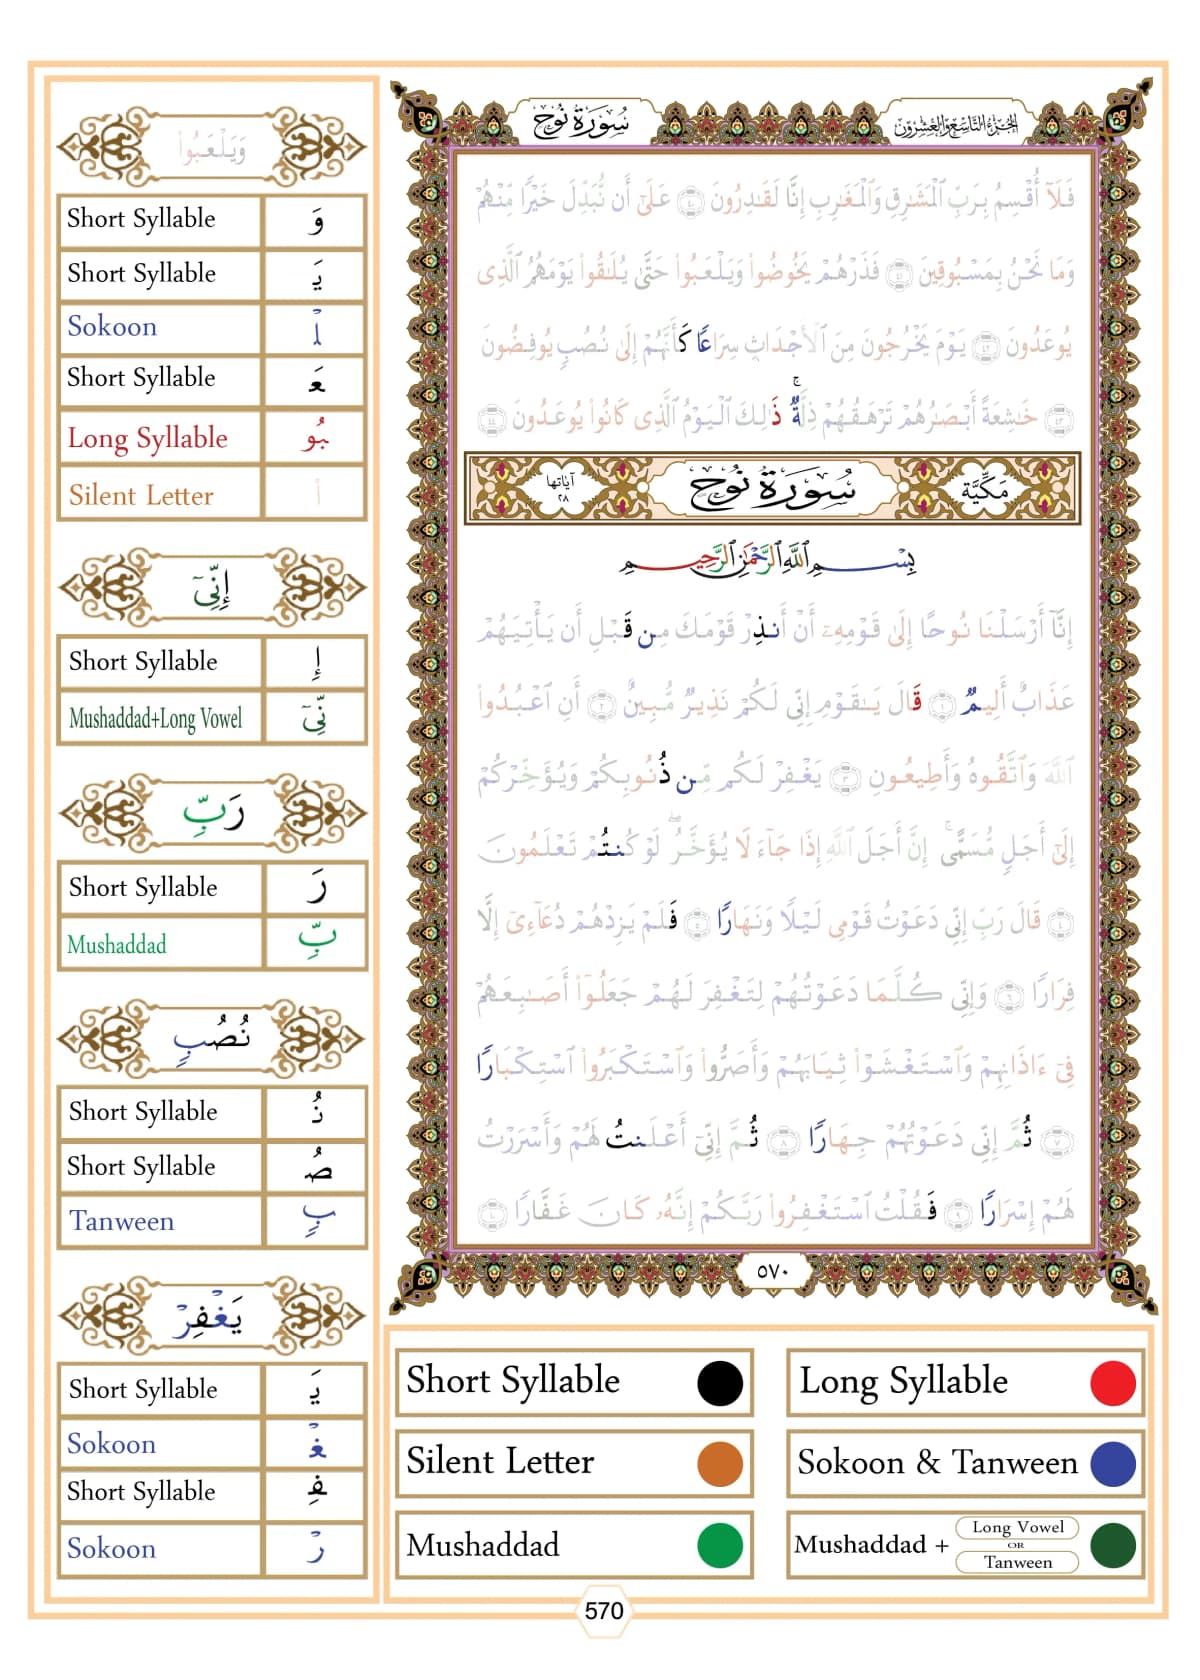 سُورَةُ نُوحٍ
الجُزْءُ التَّاسِعُ وَالعِشْرُونَ
فَلَآ أُقْسِمُ بِرَبِّ ٱلْمَشَٰرِقِ وَٱلْمَغَٰرِبِ إِنَّا لَقَٰدِرُونَ ٤٠ عَلَىٰٓ أَن نُّبَدِّلَ خَيْرًا مِّنْهُمْ
وَمَا نَحْنُ بِمَسْبُوقِينَ ٤١ فَذَرْهُمْ يَخُوضُوا۟ وَيَلْعَبُوا۟ حَتَّىٰ يُلَٰقُوا۟ يَوْمَهُمُ ٱلَّذِى
يُوعَدُونَ ٤٢ يَوْمَ يَخْرُجُونَ مِنَ ٱلْأَجْدَاثِ سِرَاعًا كَأَنَّهُمْ إِلَىٰ نُصُبٍ يُوفِضُونَ
٤٣ خَٰشِعَةً أَبْصَٰرُهُمْ تَرْهَقُهُمْ ذِلَّةٌ ۚ ذَٰلِكَ ٱلْيَوْمُ ٱلَّذِى كَانُوا۟ يُوعَدُونَ ٤٤
مَكِّيَّة
سُورَةُ نُوحٍ
آيَاتُهَا
٢٨
بِسْمِ ٱللَّهِ ٱلرَّحْمَٰنِ ٱلرَّحِيمِ
إِنَّآ أَرْسَلْنَا نُوحًا إِلَىٰ قَوْمِهِۦٓ أَنْ أَنذِرْ قَوْمَكَ مِن قَبْلِ أَن يَأْتِيَهُمْ
عَذَابٌ أَلِيمٌ ١ قَالَ يَٰقَوْمِ إِنِّى لَكُمْ نَذِيرٌ مُّبِينٌ ٢ أَنِ ٱعْبُدُوا۟
ٱللَّهَ وَٱتَّقُوهُ وَأَطِيعُونِ ٣ يَغْفِرْ لَكُم مِّن ذُنُوبِكُمْ وَيُؤَخِّرْكُمْ
إِلَىٰٓ أَجَلٍ مُّسَمًّى ۚ إِنَّ أَجَلَ ٱللَّهِ إِذَا جَآءَ لَا يُؤَخَّرُ ۖ لَوْ كُنتُمْ تَعْلَمُونَ
٤ قَالَ رَبِّ إِنِّى دَعَوْتُ قَوْمِى لَيْلًا وَنَهَارًا ٥ فَلَمْ يَزِدْهُمْ دُعَآءِىٓ إِلَّا
فِرَارًا ٦ وَإِنِّى كُلَّمَا دَعَوْتُهُمْ لِتَغْفِرَ لَهُمْ جَعَلُوٓا۟ أَصَٰبِعَهُمْ
فِىٓ ءَاذَانِهِمْ وَٱسْتَغْشَوْا۟ ثِيَابَهُمْ وَأَصَرُّوا۟ وَٱسْتَكْبَرُوا۟ ٱسْتِكْبَارًا
٧ ثُمَّ إِنِّى دَعَوْتُهُمْ جِهَارًا ٨ ثُمَّ إِنِّىٓ أَعْلَنتُ لَهُمْ وَأَسْرَرْتُ
لَهُمْ إِسْرَارًا ٩ فَقُلْتُ ٱسْتَغْفِرُوا۟ رَبَّكُمْ إِنَّهُۥ كَانَ غَفَّارًا ١٠
٥٧٠
وَيَلْعَبُوا۟
Short Syllable وَ
Short Syllable يَـ
Sokoon لْـ
Short Syllable ـعَـ
Long Syllable ـبُو
Silent Letter ا۟
إِنِّىٓ
Short Syllable إِ
Mushaddad+Long Vowel نِّىٓ
رَبِّ
Short Syllable رَ
Mushaddad بِّ
نُصُبٍ
Short Syllable نُـ
Short Syllable ـصُـ
Tanween ـبٍ
يَغْفِرْ
Short Syllable يَـ
Sokoon ـغْـ
Short Syllable ـفِـ
Sokoon ـرْ
Short Syllable
Long Syllable
Silent Letter
Sokoon & Tanween
Mushaddad
Mushaddad + Long Vowel OR Tanween
570